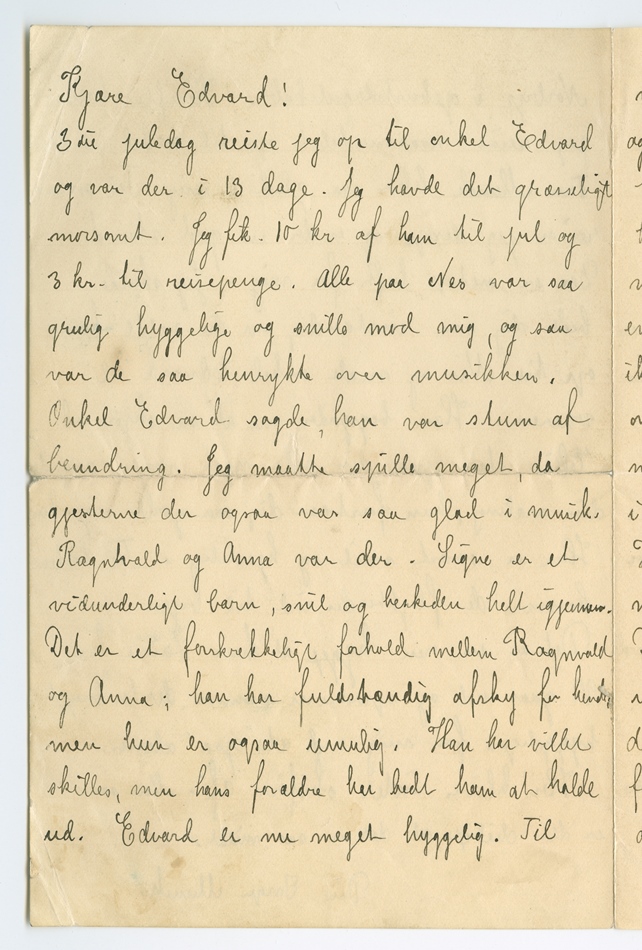 Kjære Edvard!
3die juledag reiste jeg op til onkel Edvard
og var der i 13 dage. Jeg havde det græsseligt
morsomt. Jeg fik 10 kr af ham til jul og
3 kr. til reisepenge. Alle paa Nes var saa
grulig hyggelige og snille mod mig, og saa
var de saa henrykte over musikken.
Onkel Edvard sagde, han var stum af
beundring. Jeg maatte spille meget, da
gjesterne der ogsaa var saa glad i musik.
Ragnvald og Anna var der. Signe er et
vidunderligt barn, snil og beskeden helt igjennem.
Det er et forskrekkeligt forhold mellem Ragnvald
og Anna; han har fuldstændig afsky for hende,
men hun er ogsaa umulig. Han har villet
skilles, men hans forældre har bedt ham at holde
ud. Edvard er nu meget hyggelig. Til